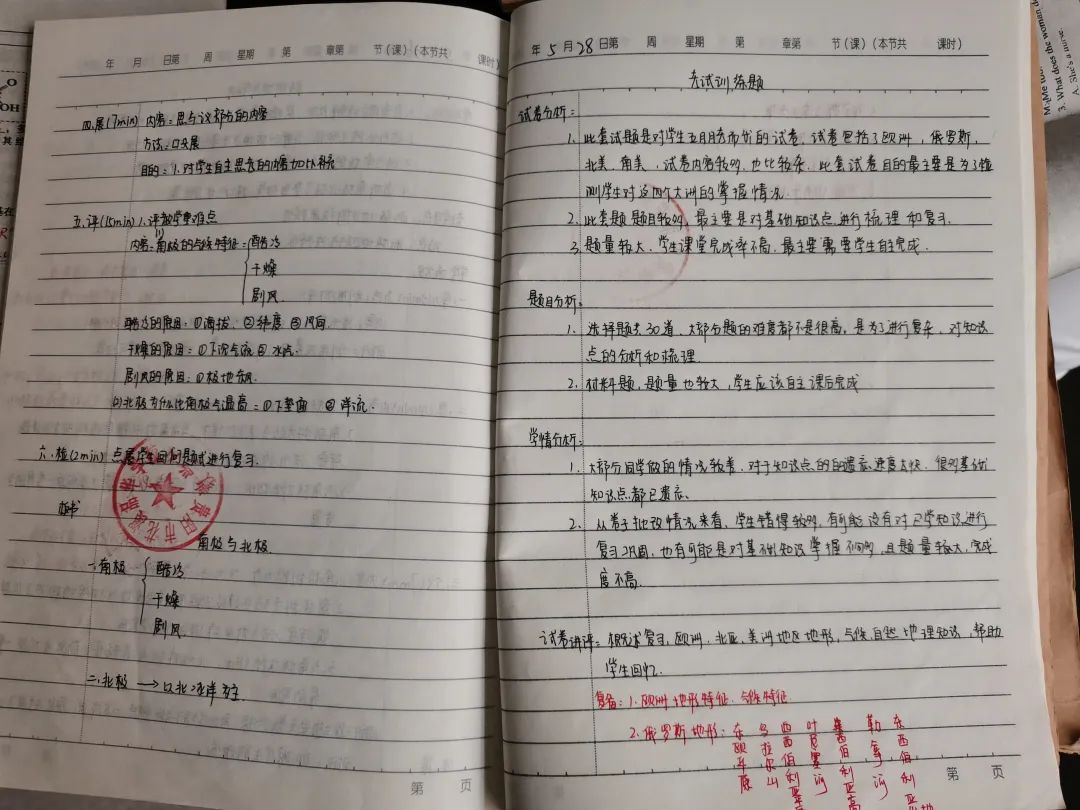 年 月 日第 周 星期 第 章第 节(课)(本节共 课时)
四.展(7min) 内容:思与议部分的内容
方法:口头展
目的:1.对学生自主思考的内容加以补充
五.评(15min) 1.评教学重难点
内容:(1)南极的气候特征:酷冷
干燥
剧风
酷冷的原因:①海拔 ②纬度 ③风向
干燥的原因:①下沉气流 ②水汽
剧风的原因:①极地东风
(2)北极为什么比南极气温高:①下垫面 ②洋流.
六.检(2min) 点屏学生回问题或进行复习.
板书
南极与北极
一.南极 酷冷
干燥
剧风
二.北极 → 以北冰洋为主
第 页
年 5 月 28 日第 周 星期 第 章第 节(课)(本节共 课时)
考试训练题
试卷分析:
1. 此套试题是对学生五月月考而析的试卷.试卷包括了欧洲,俄罗斯,
北美.南美.试卷内容较多,也比较杂.此套试卷目的最主要是为了检
测学生对这四个大洲的掌握情况.
2. 此套题题目较多,最主要是对基础知识点进行梳理和复习.
3. 题量较大.学生课堂完成率不高,最主要需要学生自主完成.
题目分析:
1. 选择题共30道.大部分题的难度都不是很高,是为了进行复习,对知识
点的分析和梳理.
2. 材料题,题量也较大,学生应该自主课后完成
学情分析:
1. 大部分同学做的情况较差.对于知识点的的遗忘速度太快.很多基础
知识点都已遗忘.
2. 从卷子批改情况来看,学生错得较多,有可能没有对已学知识进行
复习巩固,也有可能是对基础知识掌握不够,且题量较大,完成
度不高.
试卷讲评:概括复习.欧洲.北亚.美洲地区地形,气候自然地理知识,帮助
学生回忆.
复备:1.欧洲地形特征.气候特征
2.俄罗斯地形:东欧平原 乌拉尔山 西西伯利亚 叶尼塞河 西伯利亚高 勒拿河 东西伯利亚
第 页